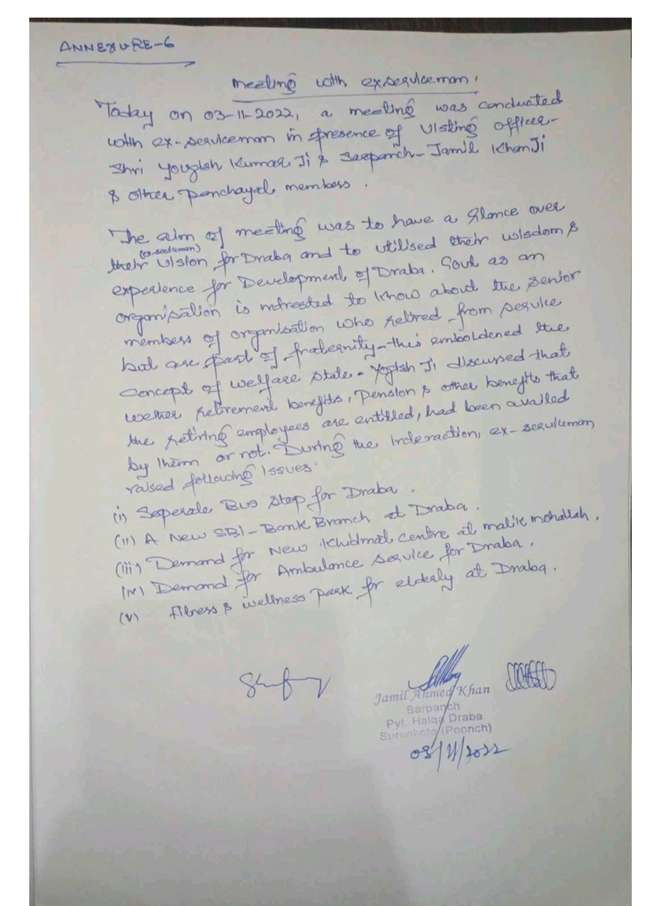 ANNEXURE-6
Meeting with exserviceman.
Today on 03-11-2022, a meeting was conducted
with ex-serviceman in presence of Visting officer-
Shri Yougish Kumar Ji & Sarpanch- Jamil Khan Ji
& other Panchayat members.
The aim of meeting was to have a Glance over
their (ex-serviceman) vision for Draba and to utilised their wisdom &
experience for Development of Draba. Govt as an
organisation is intrested to know about the senior
members of organisation who retired from service
but are part of fraternity - this emboldened the
concept of welfare state. Yogish Ji discussed that
wether retirement benefits, Pension & other benefits that
the retiring employees are entitled, had been availed
by them or not. During the inderaction, ex-serviceman
raised following issues.
(i) Seperate Bus stop for Draba.
(ii) A New SBI-Bank Branch at Draba.
(iii) Demand for New Khidmat centre at malik mohallah.
(iv) Demand for Ambulance service for Draba.
(v) Fitness & wellness park for elderly at Draba.
Jamil Ahmed Khan
Sarpanch
Pyt. Halqa Draba
Surankote (Poonch)
03/11/2022